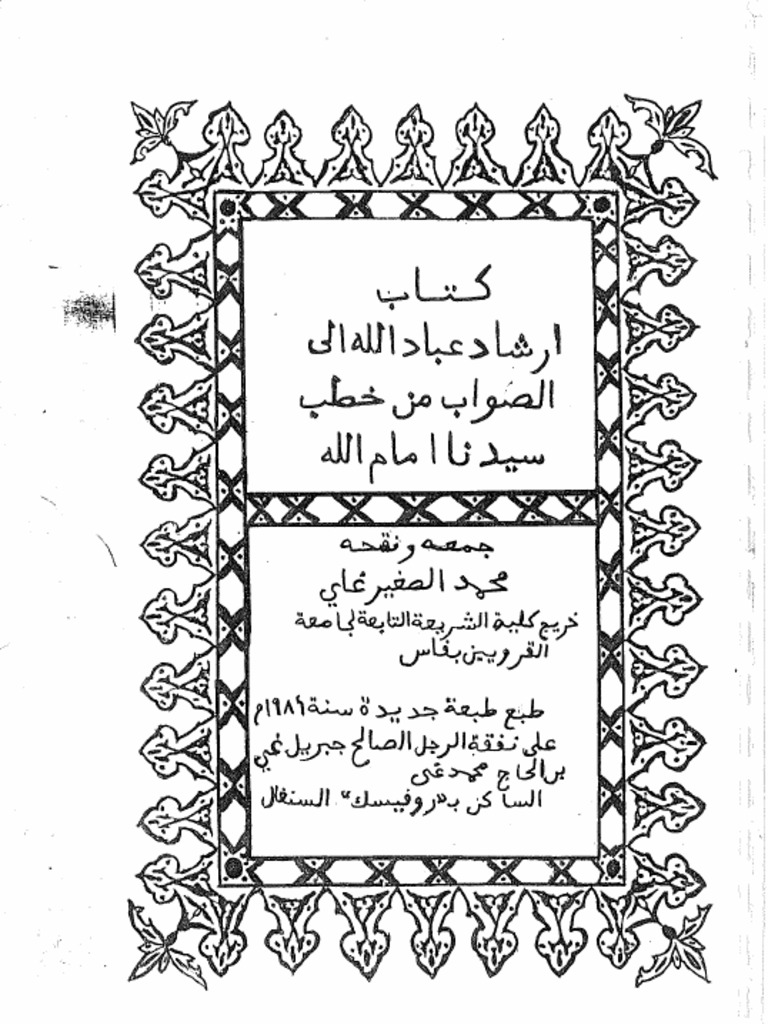 كتاب
ارشاد عباد الله الى
الصواب من خطب
سيدنا امام الله
جمعه ونقحه
محمد الصغير غاي
خريج كلية الشريعة التابعة لجامعة
القرويين بفاس
طبع طبعة جديدة سنة ١٩٨٦م
على نفقة الرجل الصالح جبريل غي
بن الحاج محمد غى
الساكن بـ"روفيسك" السنغال